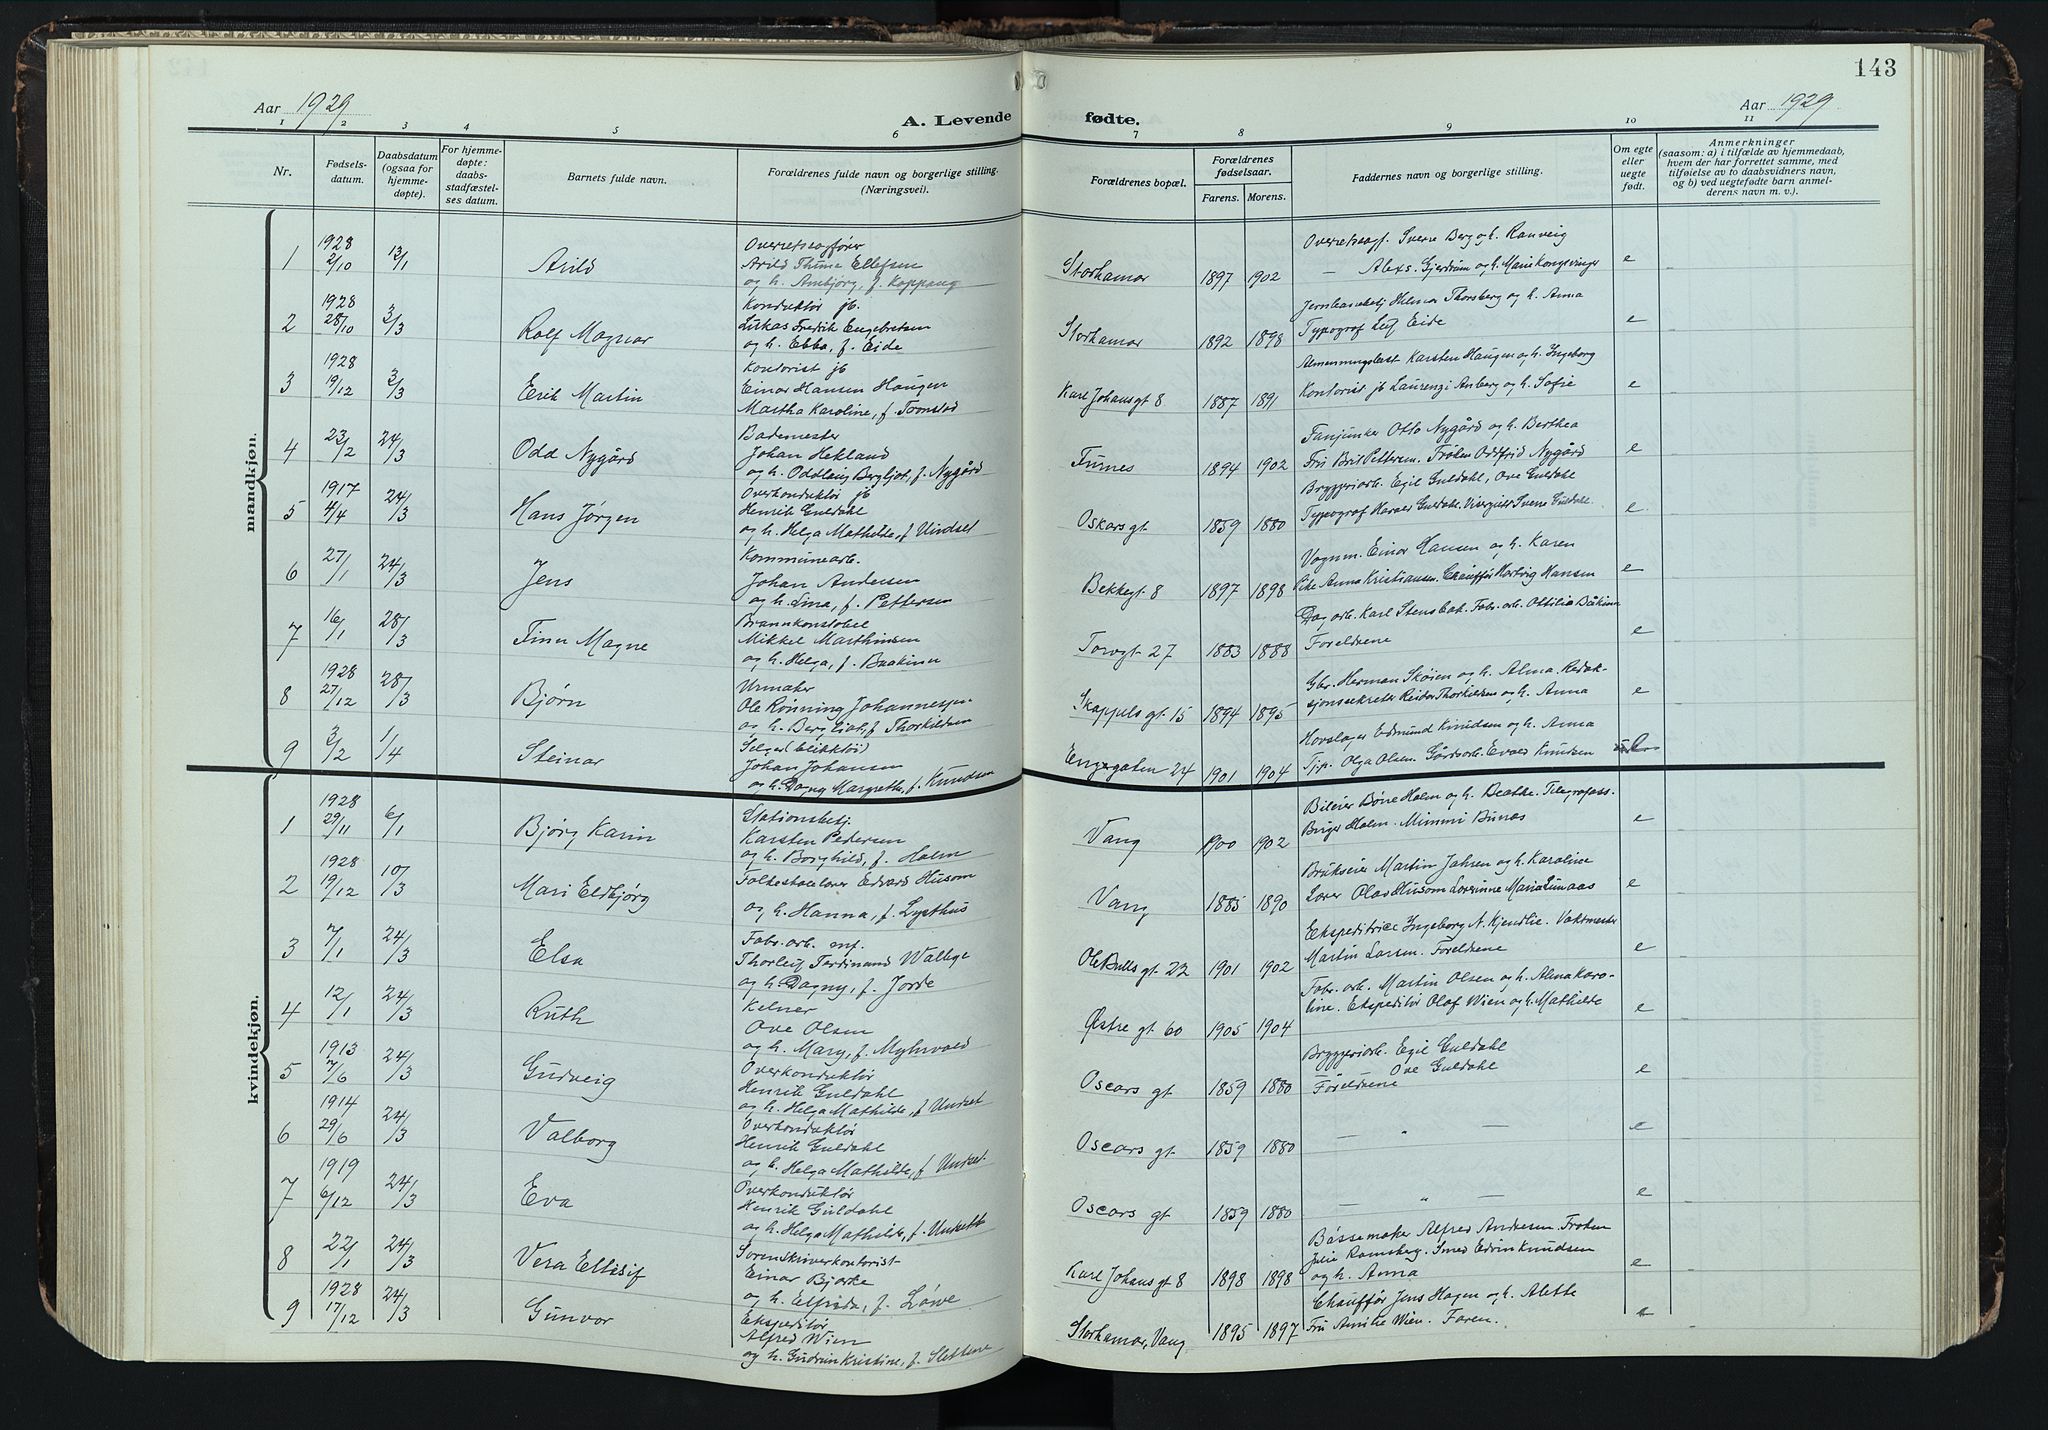 143
Aar 1929
A. Levende fødte.
Aar 1929
1 2 3 4 5 6 7 8 9 10 11
Nr.
Fødsels-
datum.
Daabsdatum
(ogsaa for
hjemme-
døpte).
For hjemme-
døpte:
daabs-
stadfæstel-
ses datum.
Barnets fulde navn.
Forældrenes fulde navn og borgerlige stilling.
(Næringsvei).
Forældrenes bopæl.
Forældrenes
fødselsaar.
Farens. Morens.
Faddernes navn og borgerlige stilling.
Om egte
eller
uegte
født.
Anmerkninger
(saasom: a) i tilfælde av hjemmedaab,
hvem der har forrettet samme, med
tilføielse av to daabsvidners navn,
og b) ved uegtefødte barn anmel-
derens navn m. v.).
mandkjøn.
1928 Overretssagfører Overretssagf. Sverre Berg og h. Ranveig
1 2/10 13/1 Arild Arild Thune Ellefsen Storhamar 1897 1902 — Alexs. Gjerdrum og h. Marie Kongsvinger e
og h. Ambjørg, f. Koppang
1928 Konduktør jb. Helmer Thorsberg og h. Anna
2 28/10 3/3 Rolf Magnar Lukas Fredrik Engebretsen Storhamar 1892 1898 Typograf Leif Eide e
og h. Ebba, f. Eide
1928 Kontorist jb Karsten Haugen og h. Ingeborg
3 19/12 3/3 Erik Martin Einar Hansen Haugen Karl Johansgt 8 1887 1891 Kontorist jb Anberg og h. Sofie e
Martha Karoline, f. Tronstad
Bademester Fanjunker Otto Nygård og h. Berthea
4 23/2 24/3 Odd Nygård Johan Hekland Furnes 1894 1902 Fru Brit Pettersen. Frøken Oddfrid Nygård e
og h. Oddlaug Bergljot, f. Nygård
1917 Overkonduktør jb Bryggeriarb. Egil Guldahl, Ove Guldahl
5 4/4 24/3 Hans Jørgen Henrik Guldahl Oskarsgt 1859 1880 Typograf Harald Guldahl. Visergutt Sverre Guldahl. e
og h. Helga Mathilde, f. Undset
Kommunearb. Vognm. Einar Hansen og h. Karen
6 27/1 24/3 Jens Johan Andersen Bekkegt 8 1897 1898 Pike Anna Kristiansen. Chauffør Hartvig Hansen e
og h. Lina, f. Pettersen
Brannkonstabel Dagarb. Karl Stensbat. Fabr. arb. Ottilia Båkinn
7 16/1 28/3 Finn Magne Mikkel Marthinsen Torvgt 27 1883 1888 Foreldrene e
og h. Helga, f. Baakinn
1928 Urmaker Gbr. Herman Skøien og h. Alma. Redak-
8 27/12 28/3 Bjørn Ole Rønning Johannessen Skappelsgt 15 1894 1895 sjonssekretær Reidar Thorkildsen og h. Anna e
og h. Bergliot, f. Thorkildsen
Selger Hovslager Edmund Knudsen og h. Anna
9 3/2 1/4 Steinar Johan Johansen Engegaten 24 1901 1904 Tj.p. Olga Olsen. Gårdsarb. Evald Knudsen
og h. Dagny Margrethe, f. Knudsen
kvindekjøn.
1928 Stationsbetj. Bileier Børre Holm og h. Beathe. Telegrafass.
1 29/11 6/1 Bjørg Karin Karsten Pedersen Vang 1900 1902 Birger Holm. Mimmi Bunæs e
og h. Borghild, f. Holm
1928 Folkeskolelærer Edvard Husom Brukseier Martin Jahren og h. Karoline
2 19/12 10/3 Mari Eldbjørg og h. Hanna, f. Lysthus Vang 1885 1890 Lærer Olav Husom Lærerinne Maria Limaas e
Fabr. arb. mf. Ekspeditrice Ingeborg A. Kjendlie. Vaktmester
3 7/1 24/3 Elsa Thorleif Ferdinand Wallege Ole Bulls gt 22 1901 1902 Martin Larsen. Foreldrene e
og h. Dagny, f. Jorde
Kelner Fabr. arb. Martin Olsen og h. Alma Karo-
4 12/1 24/3 Ruth Ove Olsen Østre gt 60 1905 1904 line. Ekspeditør Olaf Wien og h. Mathilde e
og h. Mary, f. Myhrvold
1913 Overkonduktør Bryggeriarb. Egil Guldahl
5 7/6 24/3 Gudveig Henrik Guldahl Oscars gt 1859 1880 — Ove Guldahl e
og h. Helga Mathilde, f. Undset Foreldrene
1914 Overkonduktør
6 29/6 24/3 Valborg Henrik Guldahl Oscars gt. 1859 1880 — " — e
og h. Helga Mathilde, f. Undset
1919 Overkonduktør
7 6/12 24/3 Eva Henrik Guldahl Oscars gt 1859 1880 — " — e
og h. Helga Mathilde, f. Undsett
Sorenskriverkontorist Bøssemaker Alfred Andresen. Frøken
8 22/1 24/3 Vera Ellisif Einar Bjørke Karl Johans gt 8 1898 1898 Julie Ramsberg. Smed Edvin Knudsen e
og h. Elfrida, f. Løwe og h. Anna
1928 Ekspeditør Chauffør Jens Hagen og h. Alette
9 17/12 24/3 Gunvor Alfred Wien Storhamar, Vang 1895 1897 Fru Amilie Wien. Faren. e
og h. Gudrun Kristine, f. Slettene